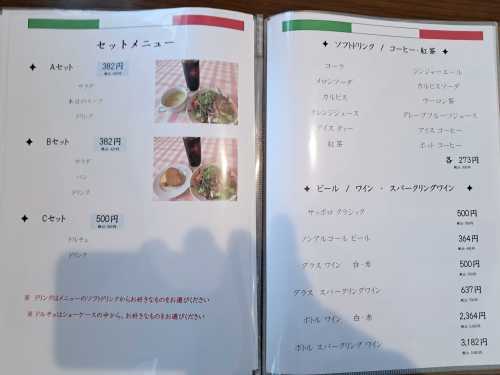 セットメニュー
Aセット 382円
サラダ
本日のスープ
ドリンク
Bセット 382円
サラダ
パン
ドリンク
Cセット 500円
ドルチェ
ドリンク
※ ドリンクはメニューのソフトドリンクからお好きなものをお選びください
※ ドルチェはショーケースの中から、お好きなものをお選びください
ソフトドリンク / コーヒー・紅茶
コーラ ジンジャーエール
メロンソーダ カルピスソーダ
カルピス ウーロン茶
オレンジジュース グレープフルーツジュース
アイスティー アイスコーヒー
紅茶 ホットコーヒー
各 273円
ビール / ワイン ・ スパークリングワイン
サッポロ クラシック 500円
ノンアルコール ビール 364円
グラス ワイン 白・赤 500円
グラス スパークリングワイン 637円
ボトル ワイン 白・赤 2,364円
ボトル スパークリングワイン 3,182円